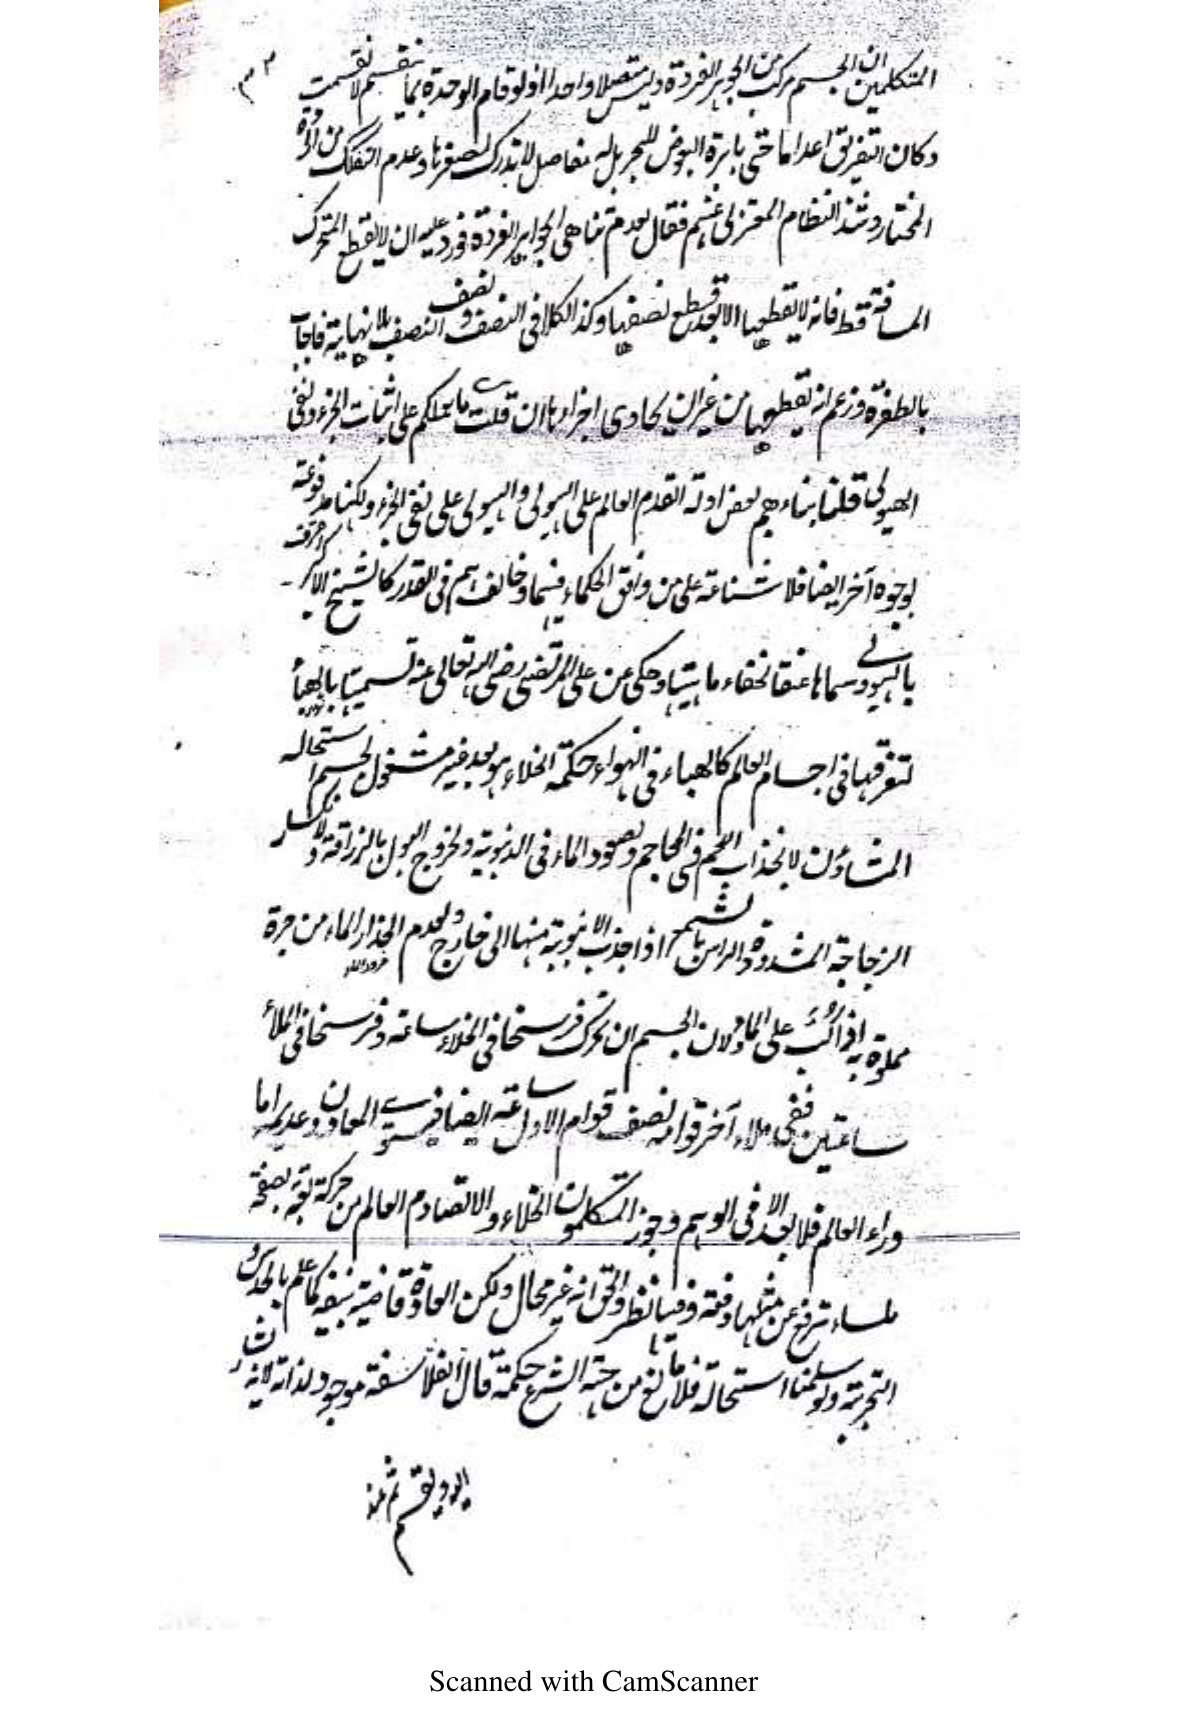 ٣٣
المتكلمين ان الجسم مركب من الجواهر الفردة وليس متصلا واحدا اذ لو قام الوحدة بما ينقسم لانقسمت
وكان التفريق اعداما حتى بابرة البعوض للبحر بل له مفاصل لا تدرك لصغرها وعدم التفلك من
المختار وشذ النظام المعتزلى عنهم فقال بعدم تناهى الجواهر الفردة فورد عليه ان لا يقطع المتحرك
المسافة قط فانه لا يقطعها الا بعد قطع نصفها وكذا الكلام فى النصف ونصف النصف بلا نهاية فاجاب
بالطفرة وزعم انه يقطعها من غير ان يحاذى اجزاءها ان قلت ما يحملكم على اثبات الجزء ونفى
الهيولى قلنا بناءهم بعض ادلة القدم العالم على الهيولى والهيولى على نفى الجزء ولكنها مدفوعة
بوجوه آخر ايضا فلا شناعة على من وافق الحكماء فيها وخالفهم فى القدر كالشيخ الاكبر اعترف
بالهيولى وسماها عنقا لخفاء ماهيتها وحكى عن على المرتضى رضى الله تعالى عنه تسميتها بالهبأ
لتفرقها فى اجسام العالم كالهباء فى الهواء حكمة الخلاء هو بعد غير مشغول بجسم استحاله
المشاؤن لانجذاب اللحم فى المحاجم وصعود الماء فى الانبوبة ولخروج البول بالزراقة ولانكسار
الزجاجة المشدودة الراس بالشمع اذا جذب الانبوبة منها الى خارج ولعدم انحدار الماء من جرة
مملوة به اذا اكبت على الماء ولان الجسم ان تحرك فرسخا فى الخلاء ساعة وفرسخا فى الملأ
ساعتين ففى ملاء آخر قوامه نصف قوام الاول ساعة ايضا فيستوى المعاون وعديمه اما
وراء العالم فلا بعد الا فى الوهم وجوز المتكلمون الخلاء والا لتصادم العالم من حركة بقة بصفحة
ملساء ترفع عن مثلها دفعة وفيها نظر والحق انه غير محال ولكن العادة قاضية بنفيه كما علم بالحدس و
التجربة ولو سلمنا استحالة فلا مانع من جهة الشرع حكمة قال الفلاسفة موجود لذاته لانه